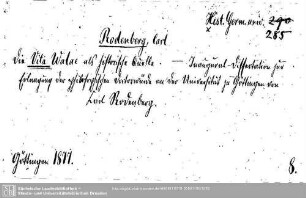 Hist. Germ. univ. 290
285
Rodenberg, Carl
Die Vita Walae als historische Quelle. — Inaugural-Dissertation zur
Erlangung der philosophischen Doctorwürde an der Universität zu Göttingen von
Carl Rodenberg.
Göttingen 1877.
8.